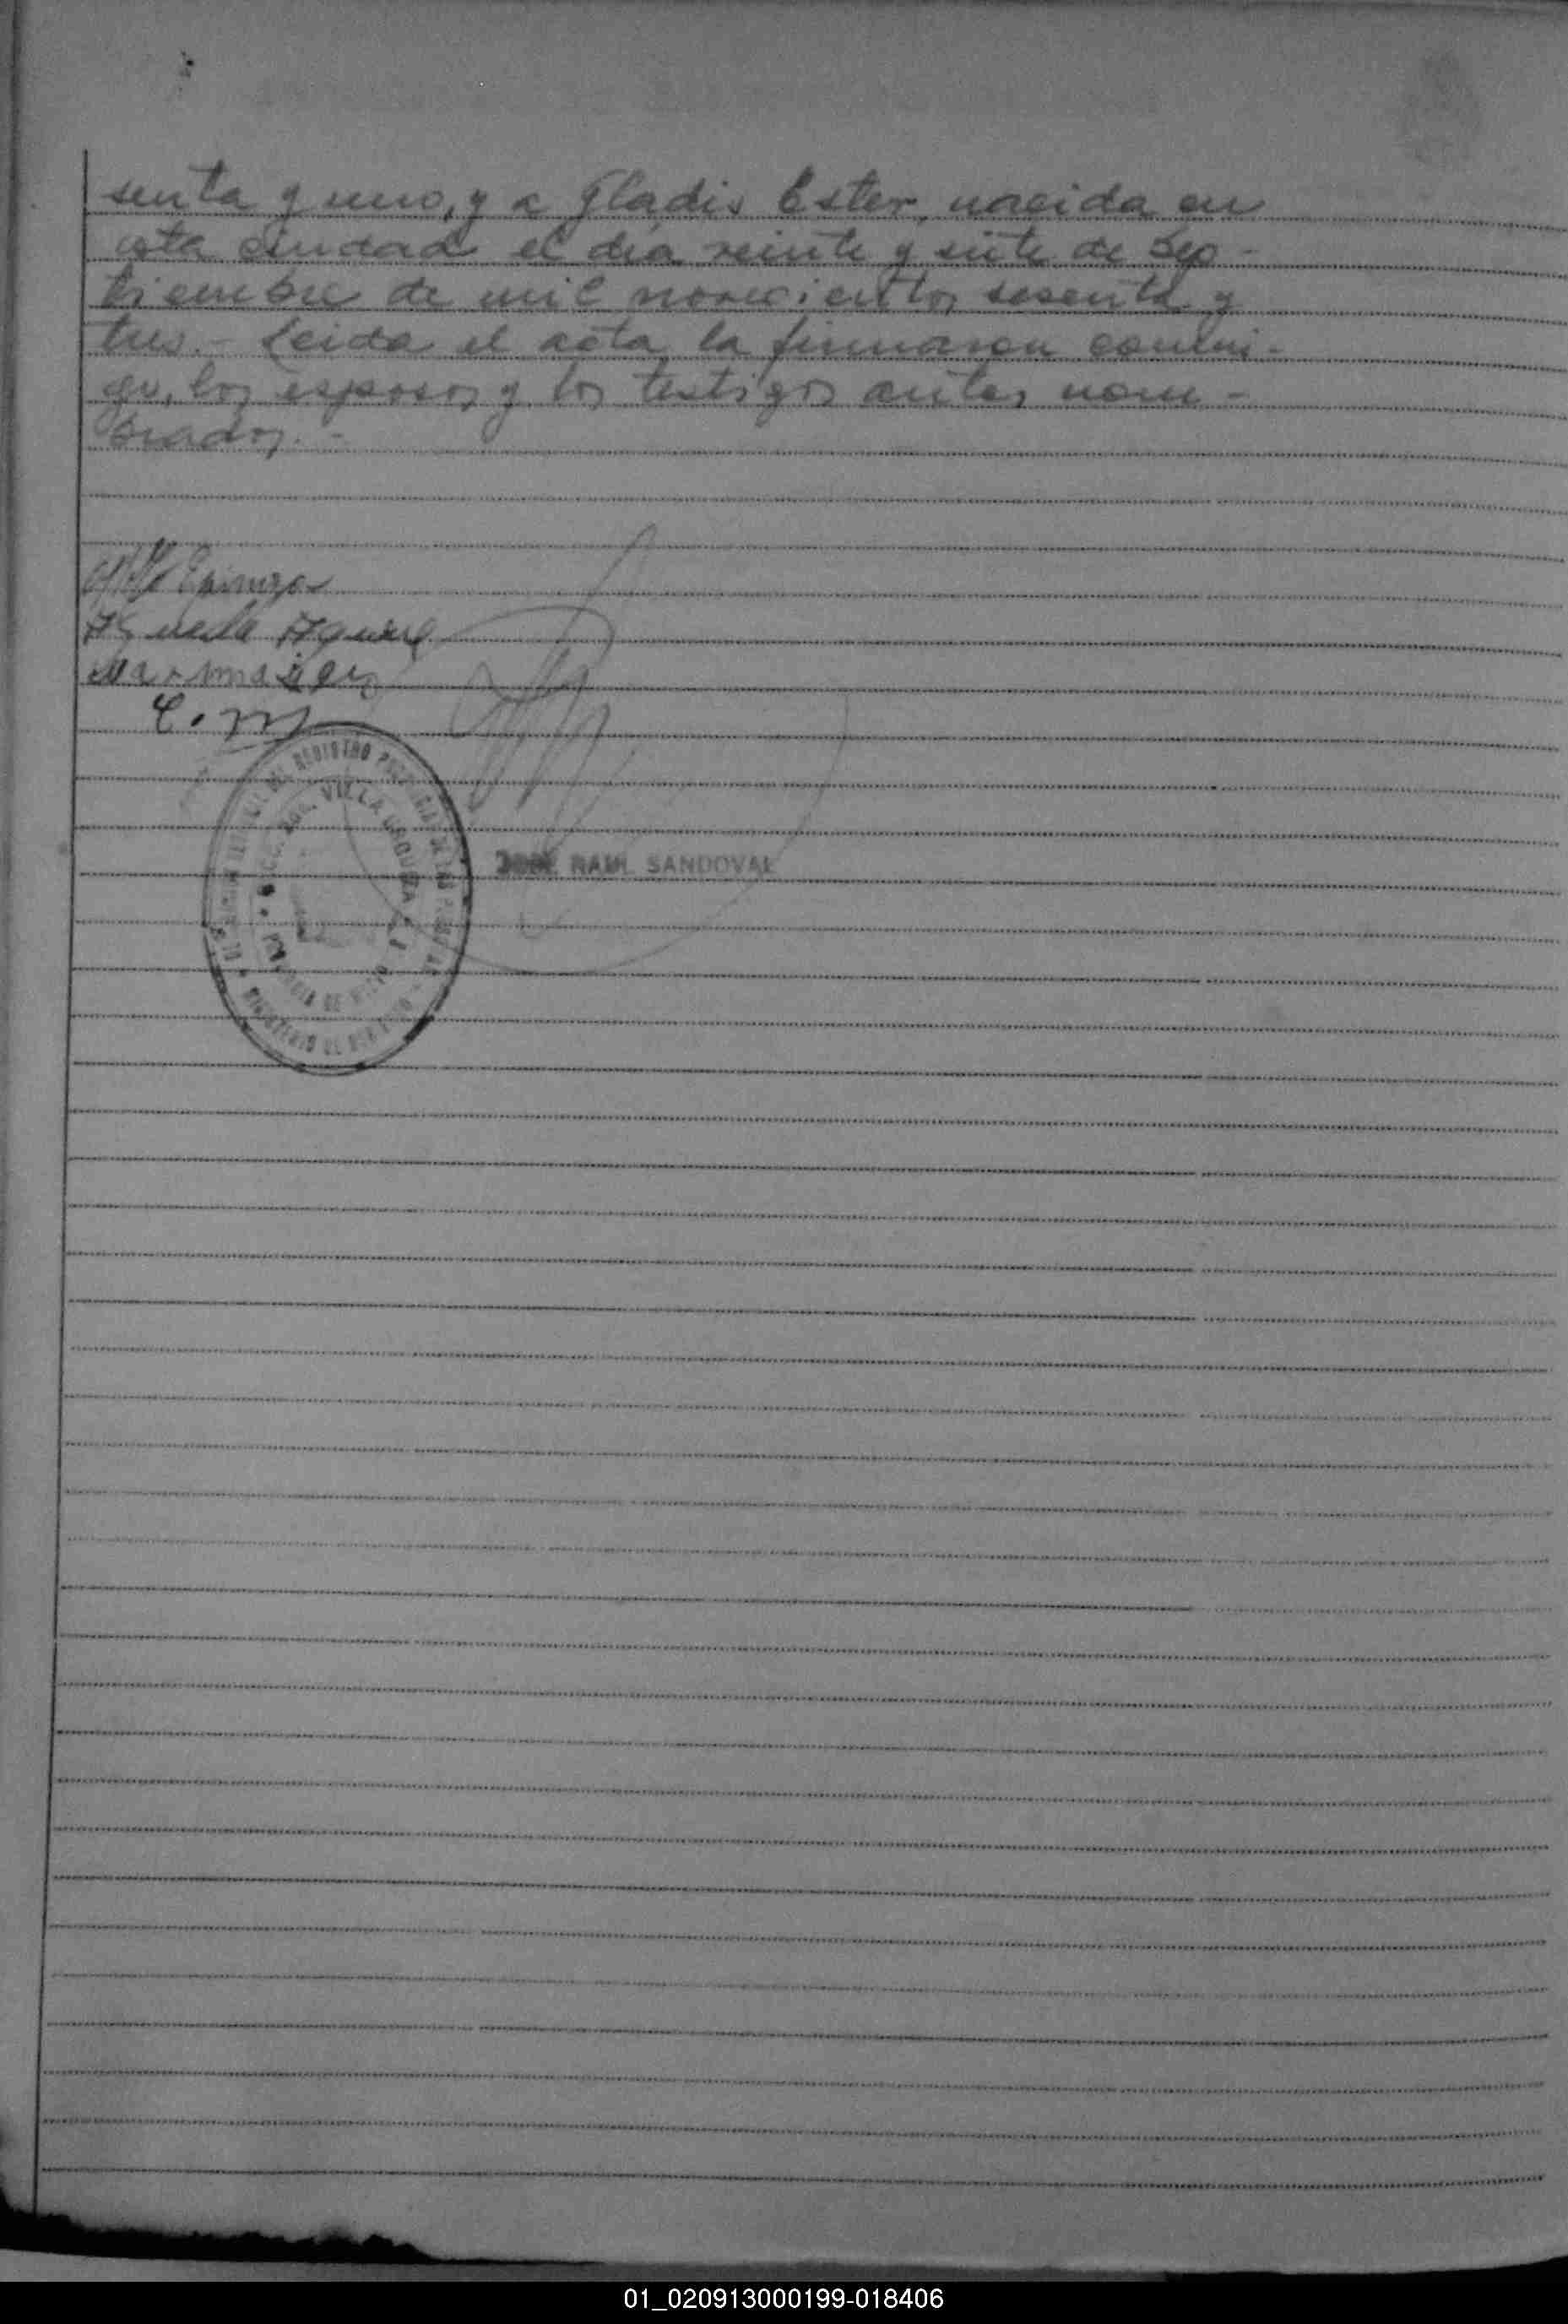 senta y uno, y a Gladis Ester, nacida en
esta ciudad el día veinte y siete de Sep-
tiembre de mil novecientos sesenta y
tres.- Leida el acta, la firmaron conmi-
go, los esposos y los testigos antes nom-
brados.-
Espinoza
REGISTRO
VILLA URQUIZA
JOSE RAUL SANDOVAL
01_020913000199-018406